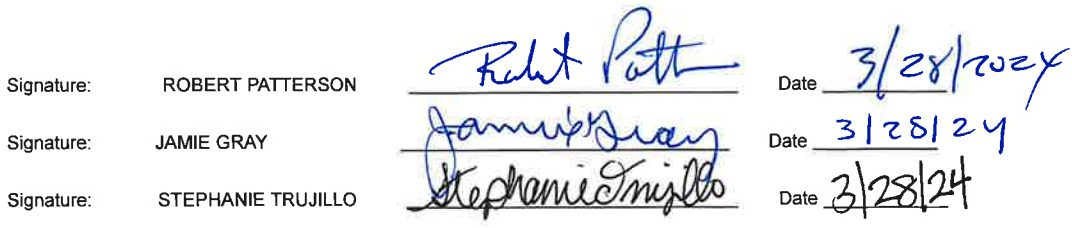 Signature: ROBERT PATTERSON Robert Patt Date 3/28/2024
Signature: JAMIE GRAY Jamie Gray Date 3/28/24
Signature: STEPHANIE TRUJILLO Stephanie Trujillo Date 3/28/24